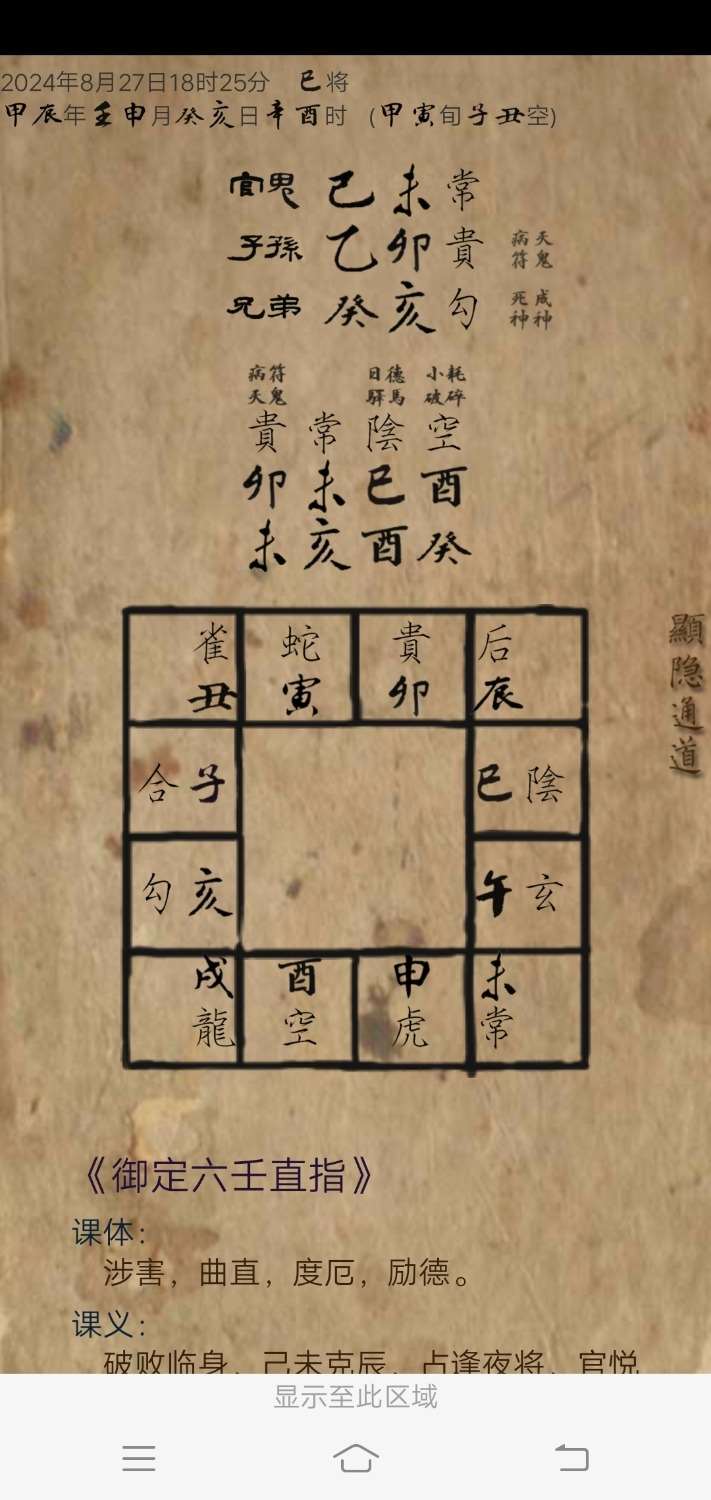 2024年8月27日18时25分 巳将
甲辰年壬申月癸亥日辛酉时 (甲寅旬子丑空)
官鬼 己未 常
子孫 乙卯 貴 病符 天鬼
兄弟 癸亥 勾 死神 成神
病符 日德 小耗
天鬼 驛馬 破碎
貴 常 陰 空
卯 未 巳 酉
未 亥 酉 癸
雀 蛇 貴 后
丑 寅 卯 辰
合子 巳陰
勾亥 午玄
戌 酉 申 未
龍 空 虎 常
顯隐通道
《御定六壬直指》
课体:
涉害，曲直，度厄，励德。
课义:
破败临身，己未克辰，占逢夜将，官悦
显示至此区域